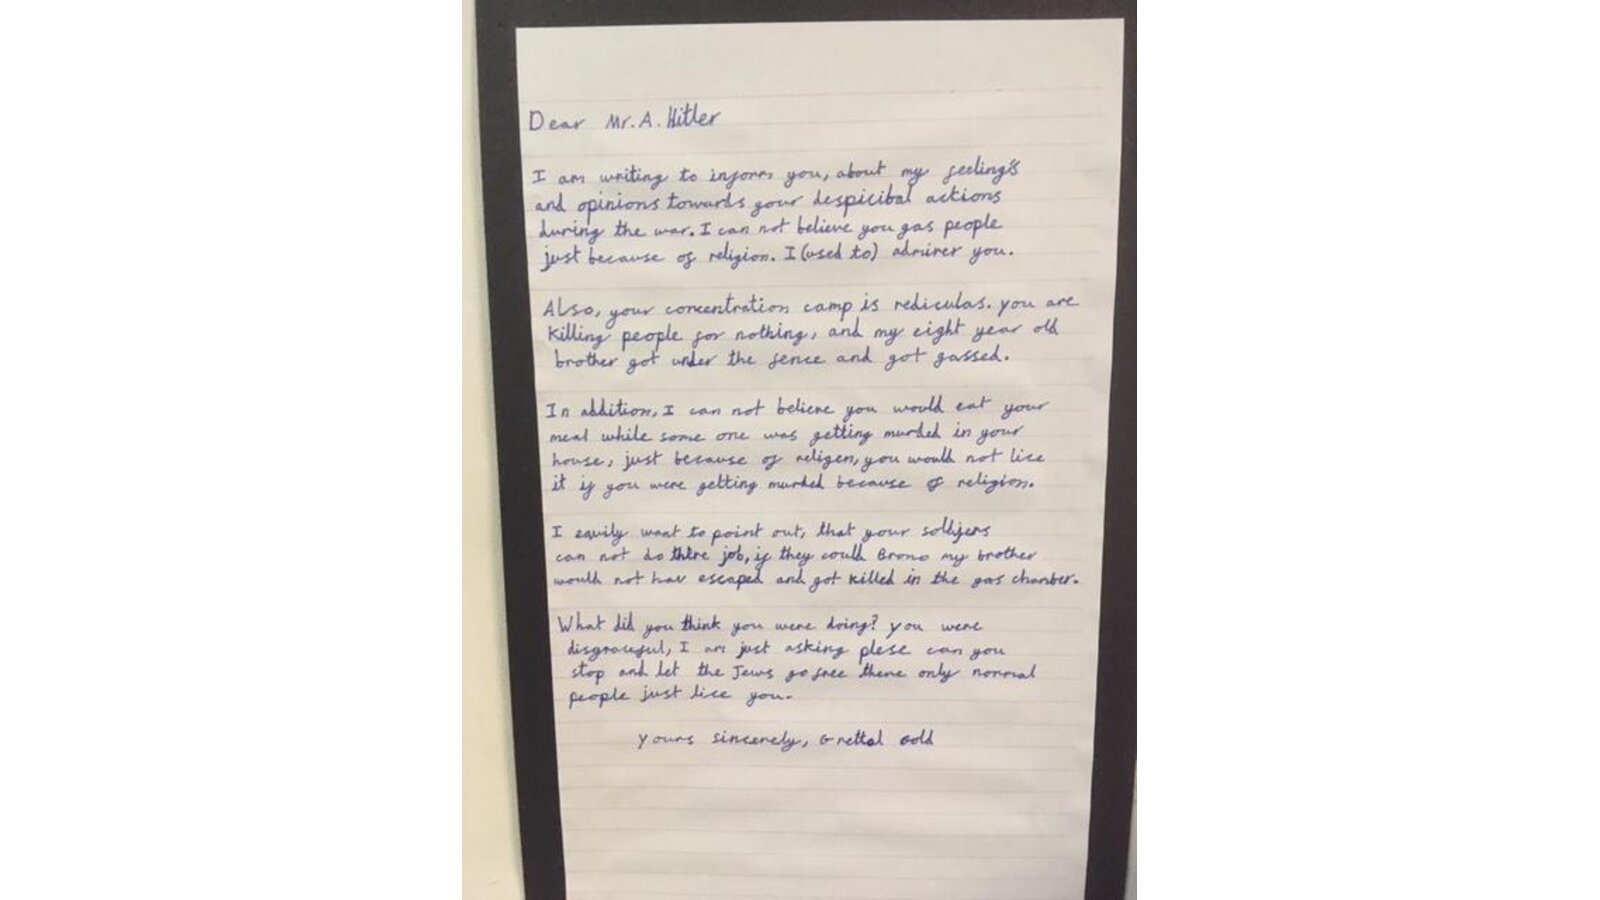 Dear Mr. A. Hitler
I am writing to inform you, about my feeling's
and opinions towards your despicibal actions
during the war. I can not believe you gas people
just because of religion. I (used to) admirer you.
Also, your concentration camp is rediculas. you are
killing people for nothing, and my eight year old
brother got under the fence and got gassed.
In addition, I can not believe you would eat your
meal while some one was getting murded in your
house, just because of religen, you would not lice
it if you were getting murded because of religion.
I equily want to point out, that your solljers
can not do there job, if they could Brono my brother
would not hav escaped and got killed in the gas chamber.
What did you think you were doing? you were
disgraceful, I am just asking plese can you
stop and let the Jews go free there only normal
people just lice you.
Yours sincerely, Grettal Gold